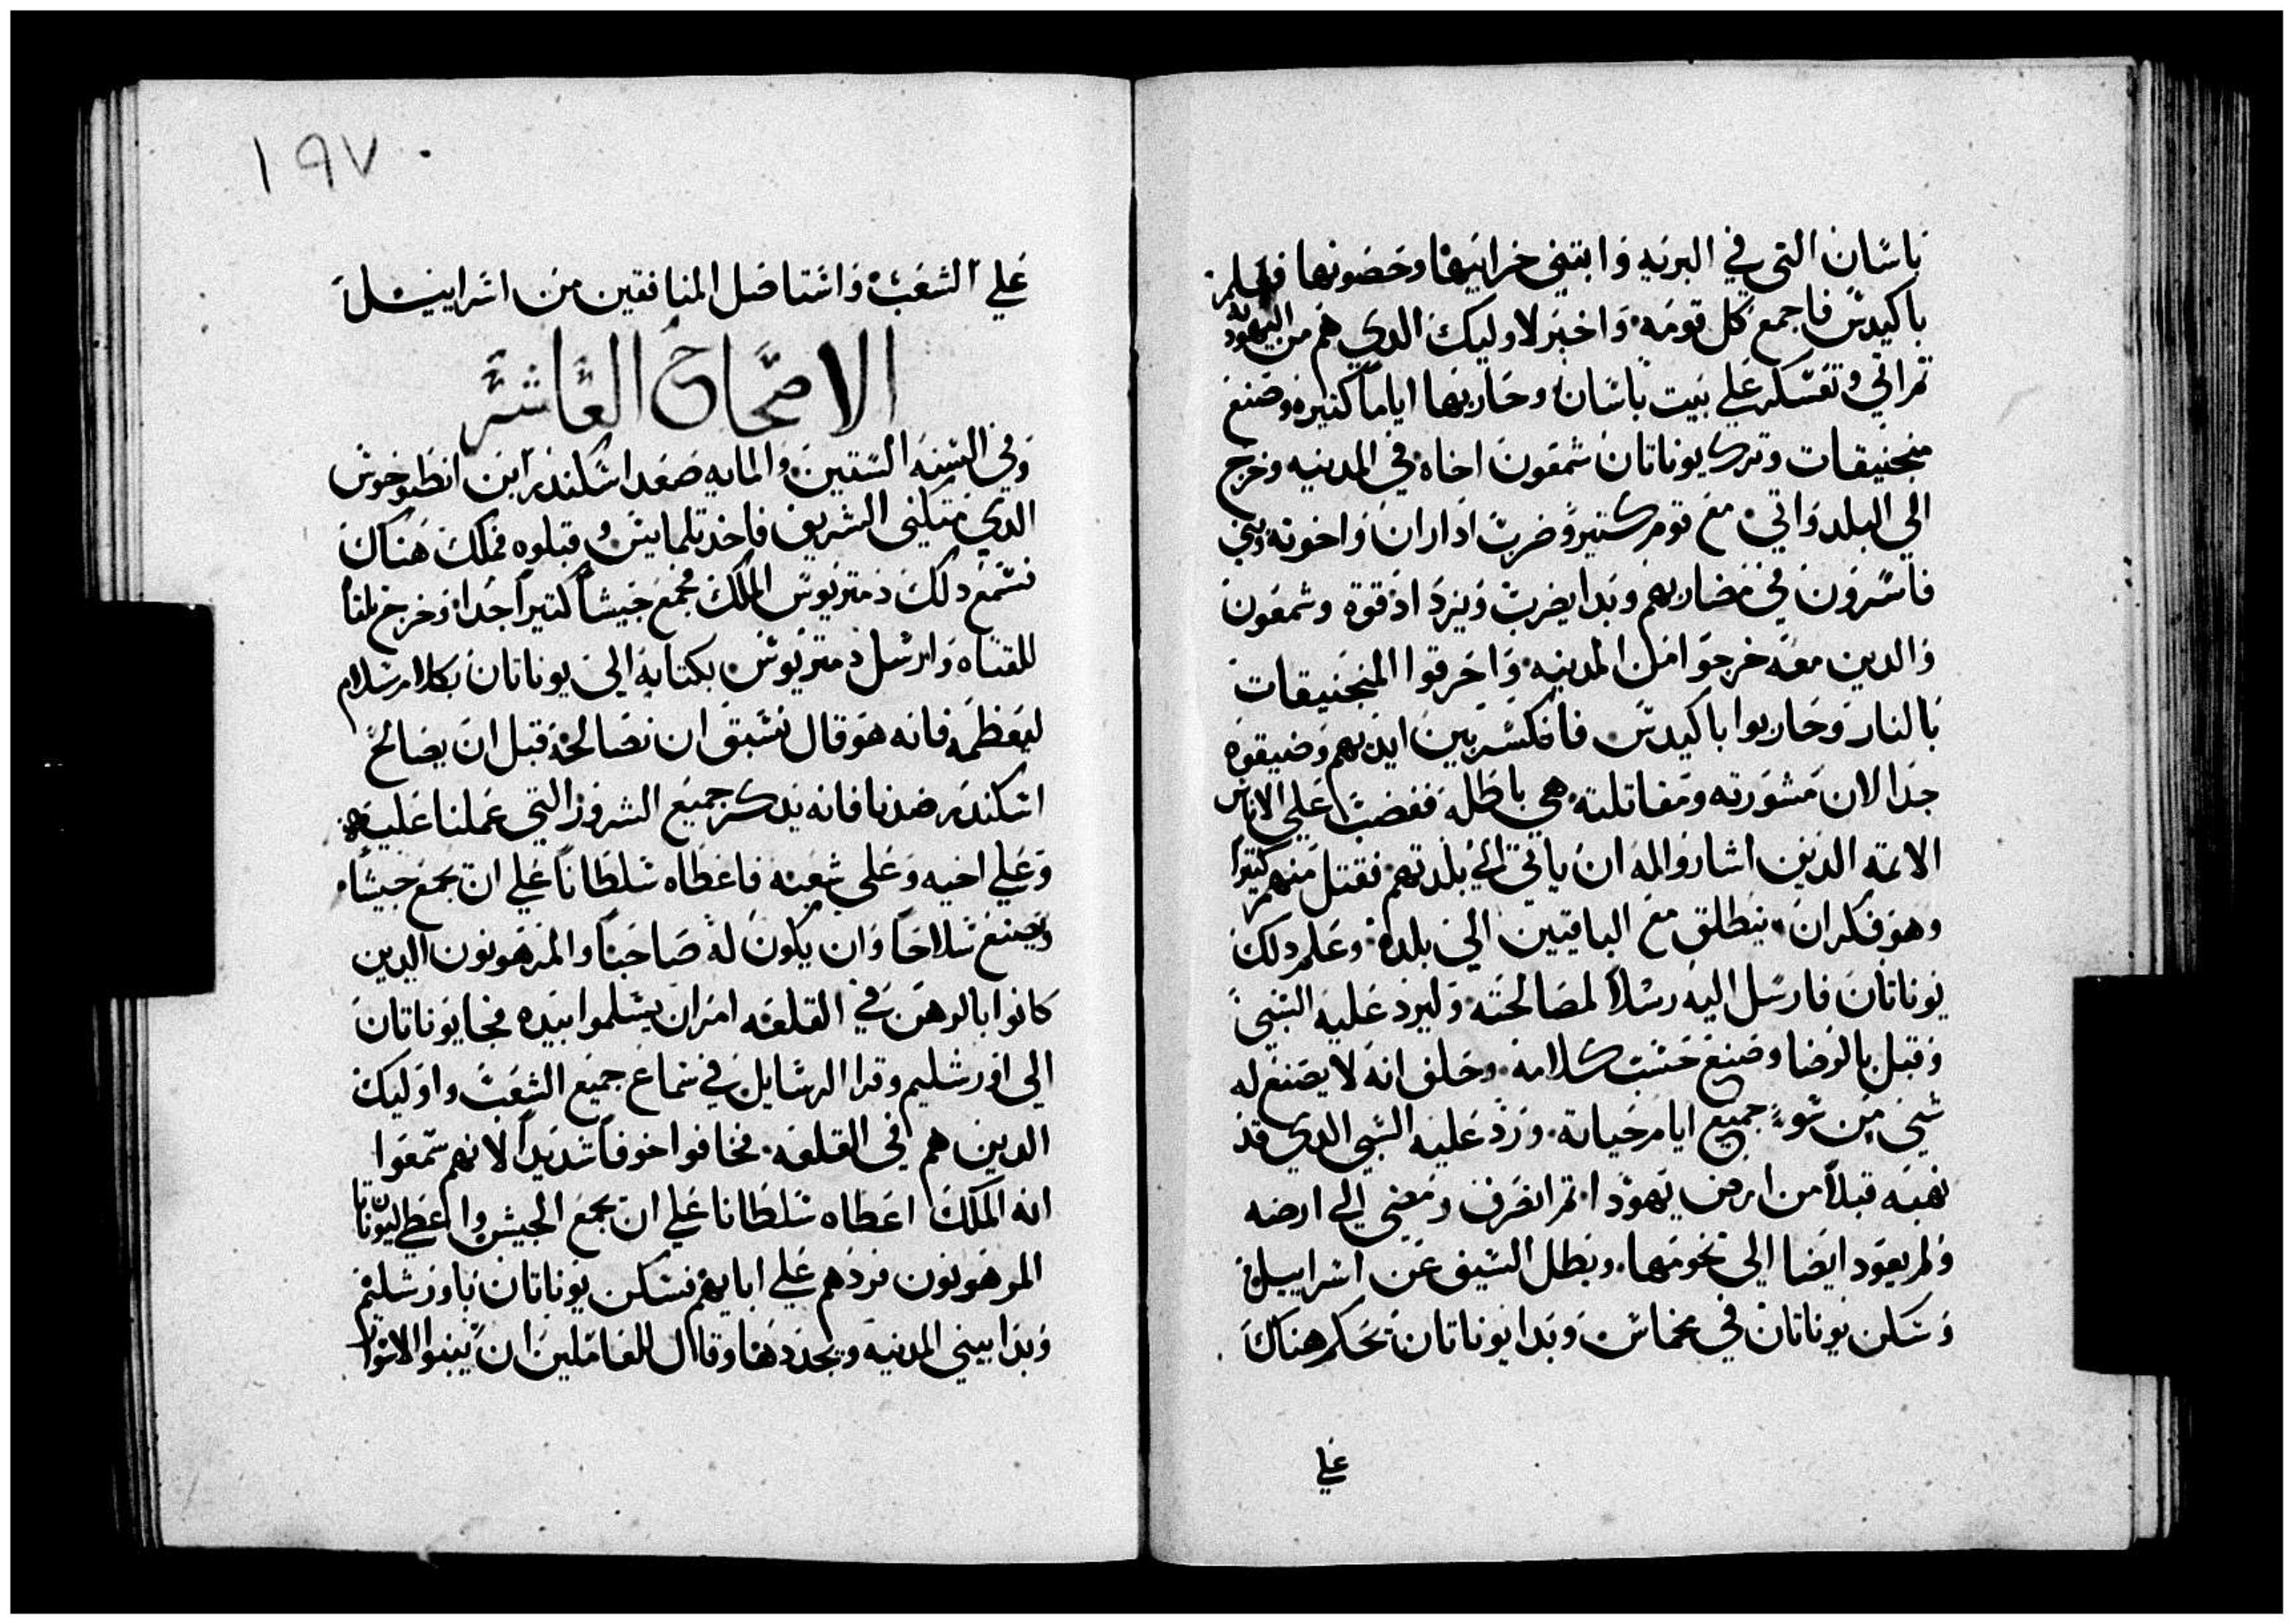 باسان التي في البريه وابتني خرايبها وحصونها فعلم
باكيدس فاجمع كل قومه واخبر لاوليك الدي هم من اليهوديه
تم اتي وتعسكر علي بيت باسان وحاربها اياماً كتيره وصنع
منجنيقات وترك يوناتان شمعون اخاه في المدينه وخرج
الي البلد واتي مع قوم كتير وضرب اداران واخوته وبني
فاسرون في مضاربهم وبدا يضرب ويزد اد قوة وشمعون
والدين معه خرجوا من المدينه واحرقوا المنجنيقات
بالنار وحاربوا باكيدس فانكسر بين ايديهم وضيقوه
جدا لان مشورته ومقاتلته هي باطله فغضب علي الاناس
الاتمه الدين اشاروا له ان ياتي الي بلدتهم فقتل منهم كتيرا
وهو فكران ينطلق مع الباقيين الي بلده وعلم دلك
يوناتان فارسل اليه رسلاً لمصالحته وليرد عليه السبي
وقبل بالرضا وصنع حسب كلامه وحلف انه لا يصنع له
شي من سوء جميع ايام حياته ورد عليه السبي الدي قد
نهبه قبلاً من ارض يهودا تم انصرف ومضي الي ارضه
ولم يعود ايضا الي تخومها وبطل السيف عن اسراييل
وسكن يوناتان في مخماس وبدا يوناتان يحكم هناك
علي
١٩٧
علي الشعب واستاصل المنافقين من اسراييل
الاصحاح العاشر
وفي السنه الستين والمايه صعد اسكندر ابن انطيوخوش
الدي متكني الشريف فاخد تلمايس وقبلوه فملك هناك
فسمع دلك دمتريوس الملك فجمع جيشاً كتيراً جدا وخرج يلقا
للقتاه وارسل دمتريوس بكتابه الي يوناتان بكلام سلام
ليعظمه فانه هو قال نسبق ان نصالحه قبل ان يصالح
اسكندر ضدنا فانه يدكر جميع الشرور التي عملنا عليه
وعلي اخيه وعلي شعبه فاعطاه سلطاناً علي ان يجمع جيشاً
ويصنع سلاحاً وان يكون له صاحباً والمرهونون الدين
كانوا بالرهن في القلعه امر ان يسلموا بيده فجا يوناتان
الي اورشليم وقرا الرسايل في سماع جميع الشعب واوليك
الدين هم في القلعه فخافوا خوفاً شديداً لانهم سمعوا
انه الملك اعطاه سلطانا علي ان يجمع الجيش واعطي ليوناتان
المرهونون فردهم علي ابايهم فسكن يوناتان باورشليم
وبدا يبني المدينه ويجددها وقال للعاملين ان يبنوا الاسوار